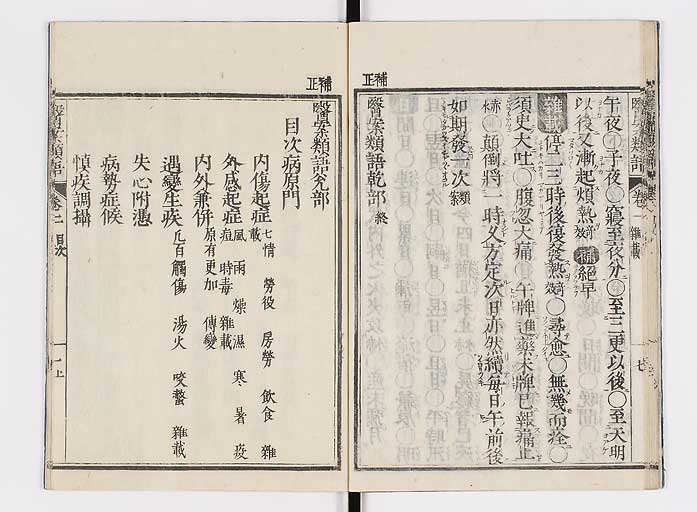 補正
午夜○子夜○寢至夜分○至三更以後○至天明
以後又漸起煩熱 補 絕早
雜載 停二三時後復發熱○尋愈○無幾而痊○
須臾大吐○腹忽大痛○午牌進藥未牌已報痛止
○顛倒將一時又方定次日亦然續每日午前後
如期發一次
醫案類語乾部 終
醫案類語 卷一 雜載 七
補正
醫案類語兌部
目次病原門
內傷起症 七情 勞役 房勞 飲食 雜載
外感起症 風 雨 燥 濕 寒 暑 疫 時毒 雜載
內外兼併 原有更加 傳變
遇變生疾 凡百觸傷 湯火 咬螫 雜載
失心附憑
病勢症候
慎疾調攝
醫案類語 卷二 目次 一上